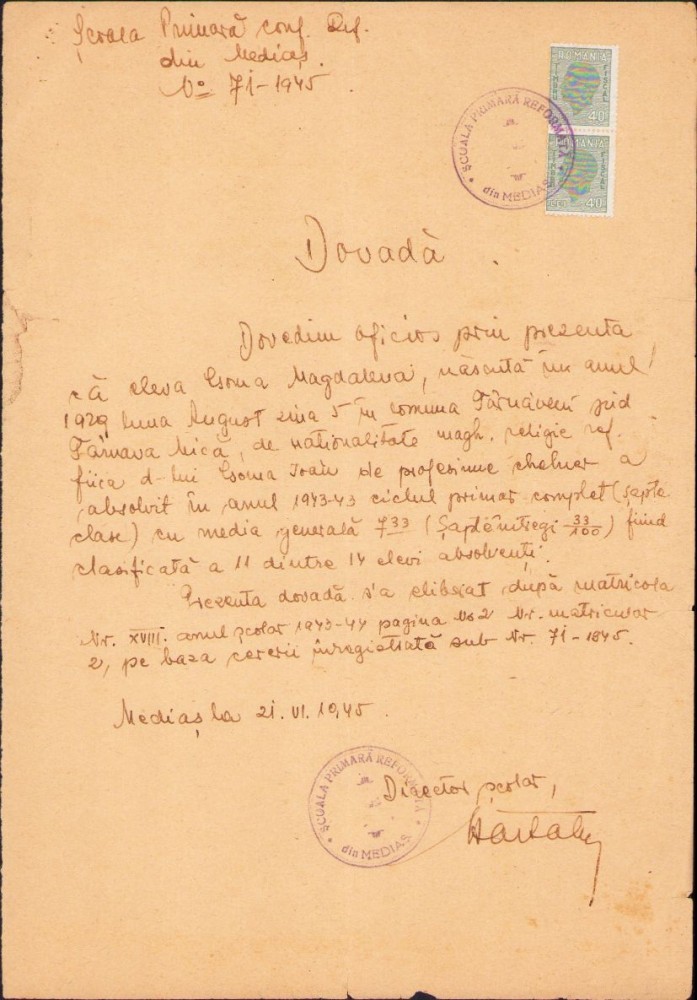 Școala Primară conf. Ref.
din Mediaș.
No 71-1945.
ROMANIA
FISCAL
40
ȘCUALA PRIMARĂ REFORMATĂ
din MEDIAȘ
ROMANIA
FISCAL
LEI 40
Dovadă.
Dovedim oficios prin prezenta
că eleva Csoma Magdaleva, născută în anul
1929 luna August ziua 5 în comuna Târnăveni jud
Târnava Mică, de naționalitate magh. religie ref.
fiica d-lui Csoma Ioan de profesiune chelner a
absolvit în anul 1943-43 ciclul primar complet (șapte
clase) cu media generală 7 33 (Șapte întregi 33/100) fiind
clasificată a 11 dintre 14 elevi absolvenți.
Prezenta dovadă s'a eliberat după matricola
Nr. XVIII. anul școlar 1943-44 pagina No 2 Nr. matricular
2, pe baza cererii înregistrată sub Nr. 71-1845.
Mediaș, la 21. VI. 1945.
ȘCUALA PRIMARĂ REFORMATĂ
din MEDIAȘ
Director școlar,